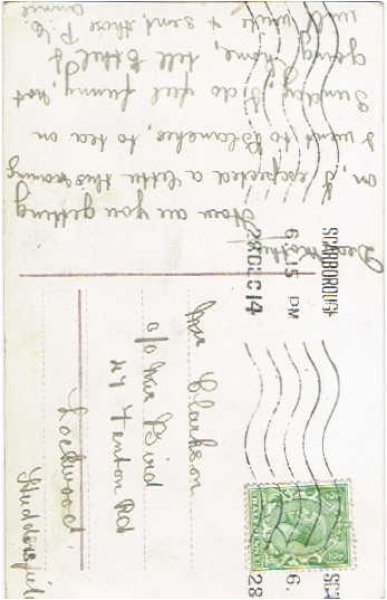 Dear Mother,
How are you getting
on, I expected a letter this morning
I went to Blanches, to tea on
Sunday, I do feel funny, not
going home, tell Ethel I
will write & send those P.C.
Annie
SCARBOROUGH
6.15 PM
28 DEC 14
Mrs Clarkson
c/o Mrs Bird
Fenton Rd
Lockwood
Huddersfield